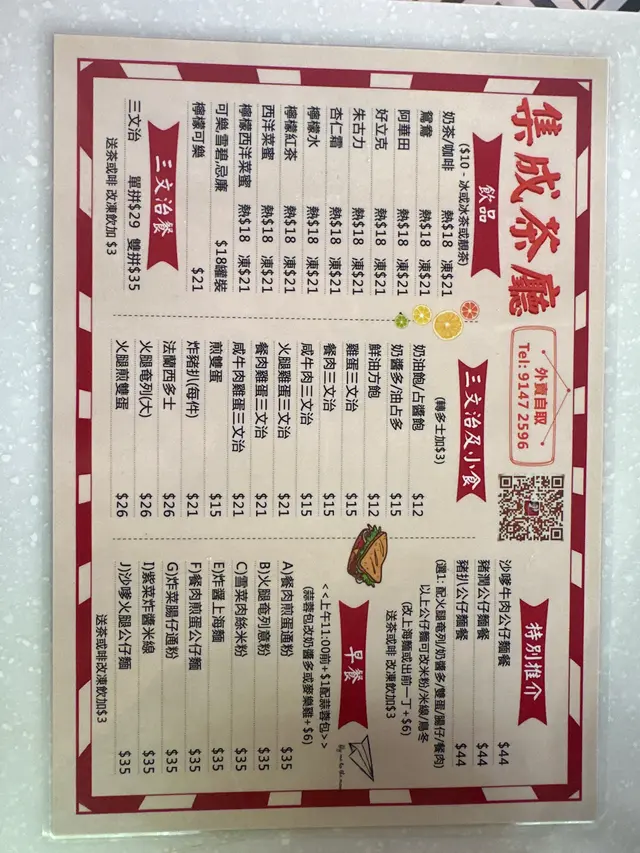 集成茶廳
外賣自取
Tel: 9147 2596
飲品
($10 - 冰或冰茶或靚茶)
奶茶/咖啡 熱$18 凍$21
鴛鴦 熱$18 凍$21
阿華田 熱$18 凍$21
好立克 熱$18 凍$21
朱古力 熱$18 凍$21
杏仁霜 熱$18 凍$21
檸檬水 熱$18 凍$21
檸檬紅茶 熱$18 凍$21
西洋菜蜜 熱$18 凍$21
檸檬西洋菜蜜 熱$18 凍$21
可樂,雪碧,忌廉 $18罐裝
檸檬可樂 $21
三文治餐
三文治 單拼$29 雙拼$35
送茶或啡 改凍飲加 $3
三文治及小食
(轉多士加$3)
奶油飽/占醬飽 $12
奶醬多/油占多 $15
鮮油方飽 $12
雞蛋三文治 $15
餐肉三文治 $15
咸牛肉三文治 $15
火腿雞蛋三文治 $21
餐肉雞蛋三文治 $21
咸牛肉雞蛋三文治 $21
煎雙蛋 $15
炸豬扒(每件) $21
法蘭西多士 $26
火腿奄列(大) $26
火腿煎雙蛋 $26
特別推介
沙嗲牛肉公仔麵餐 $44
豬潤公仔麵餐 $44
豬扒公仔麵餐 $44
(選1: 配火腿奄列/奶醬多/雙蛋/腸仔/餐肉)
以上公仔麵可改米粉/米線/烏冬
(改上海麵或出前一丁+$6)
送茶或啡 改凍飲加$3
早餐
<<上午11:00前+$1配蒜蓉包>>
(蒜蓉包改奶醬多或麥樂雞+$6)
A)餐肉煎蛋通粉 $35
B)火腿奄列意粉 $35
C)雪菜肉絲米粉 $35
E)炸醬上海麵 $35
F)餐肉煎蛋公仔麵 $35
G)炸菜腸仔通粉 $35
I)紫菜炸醬米線 $35
J)沙嗲火腿公仔麵 $35
送茶或啡改凍飲加$3